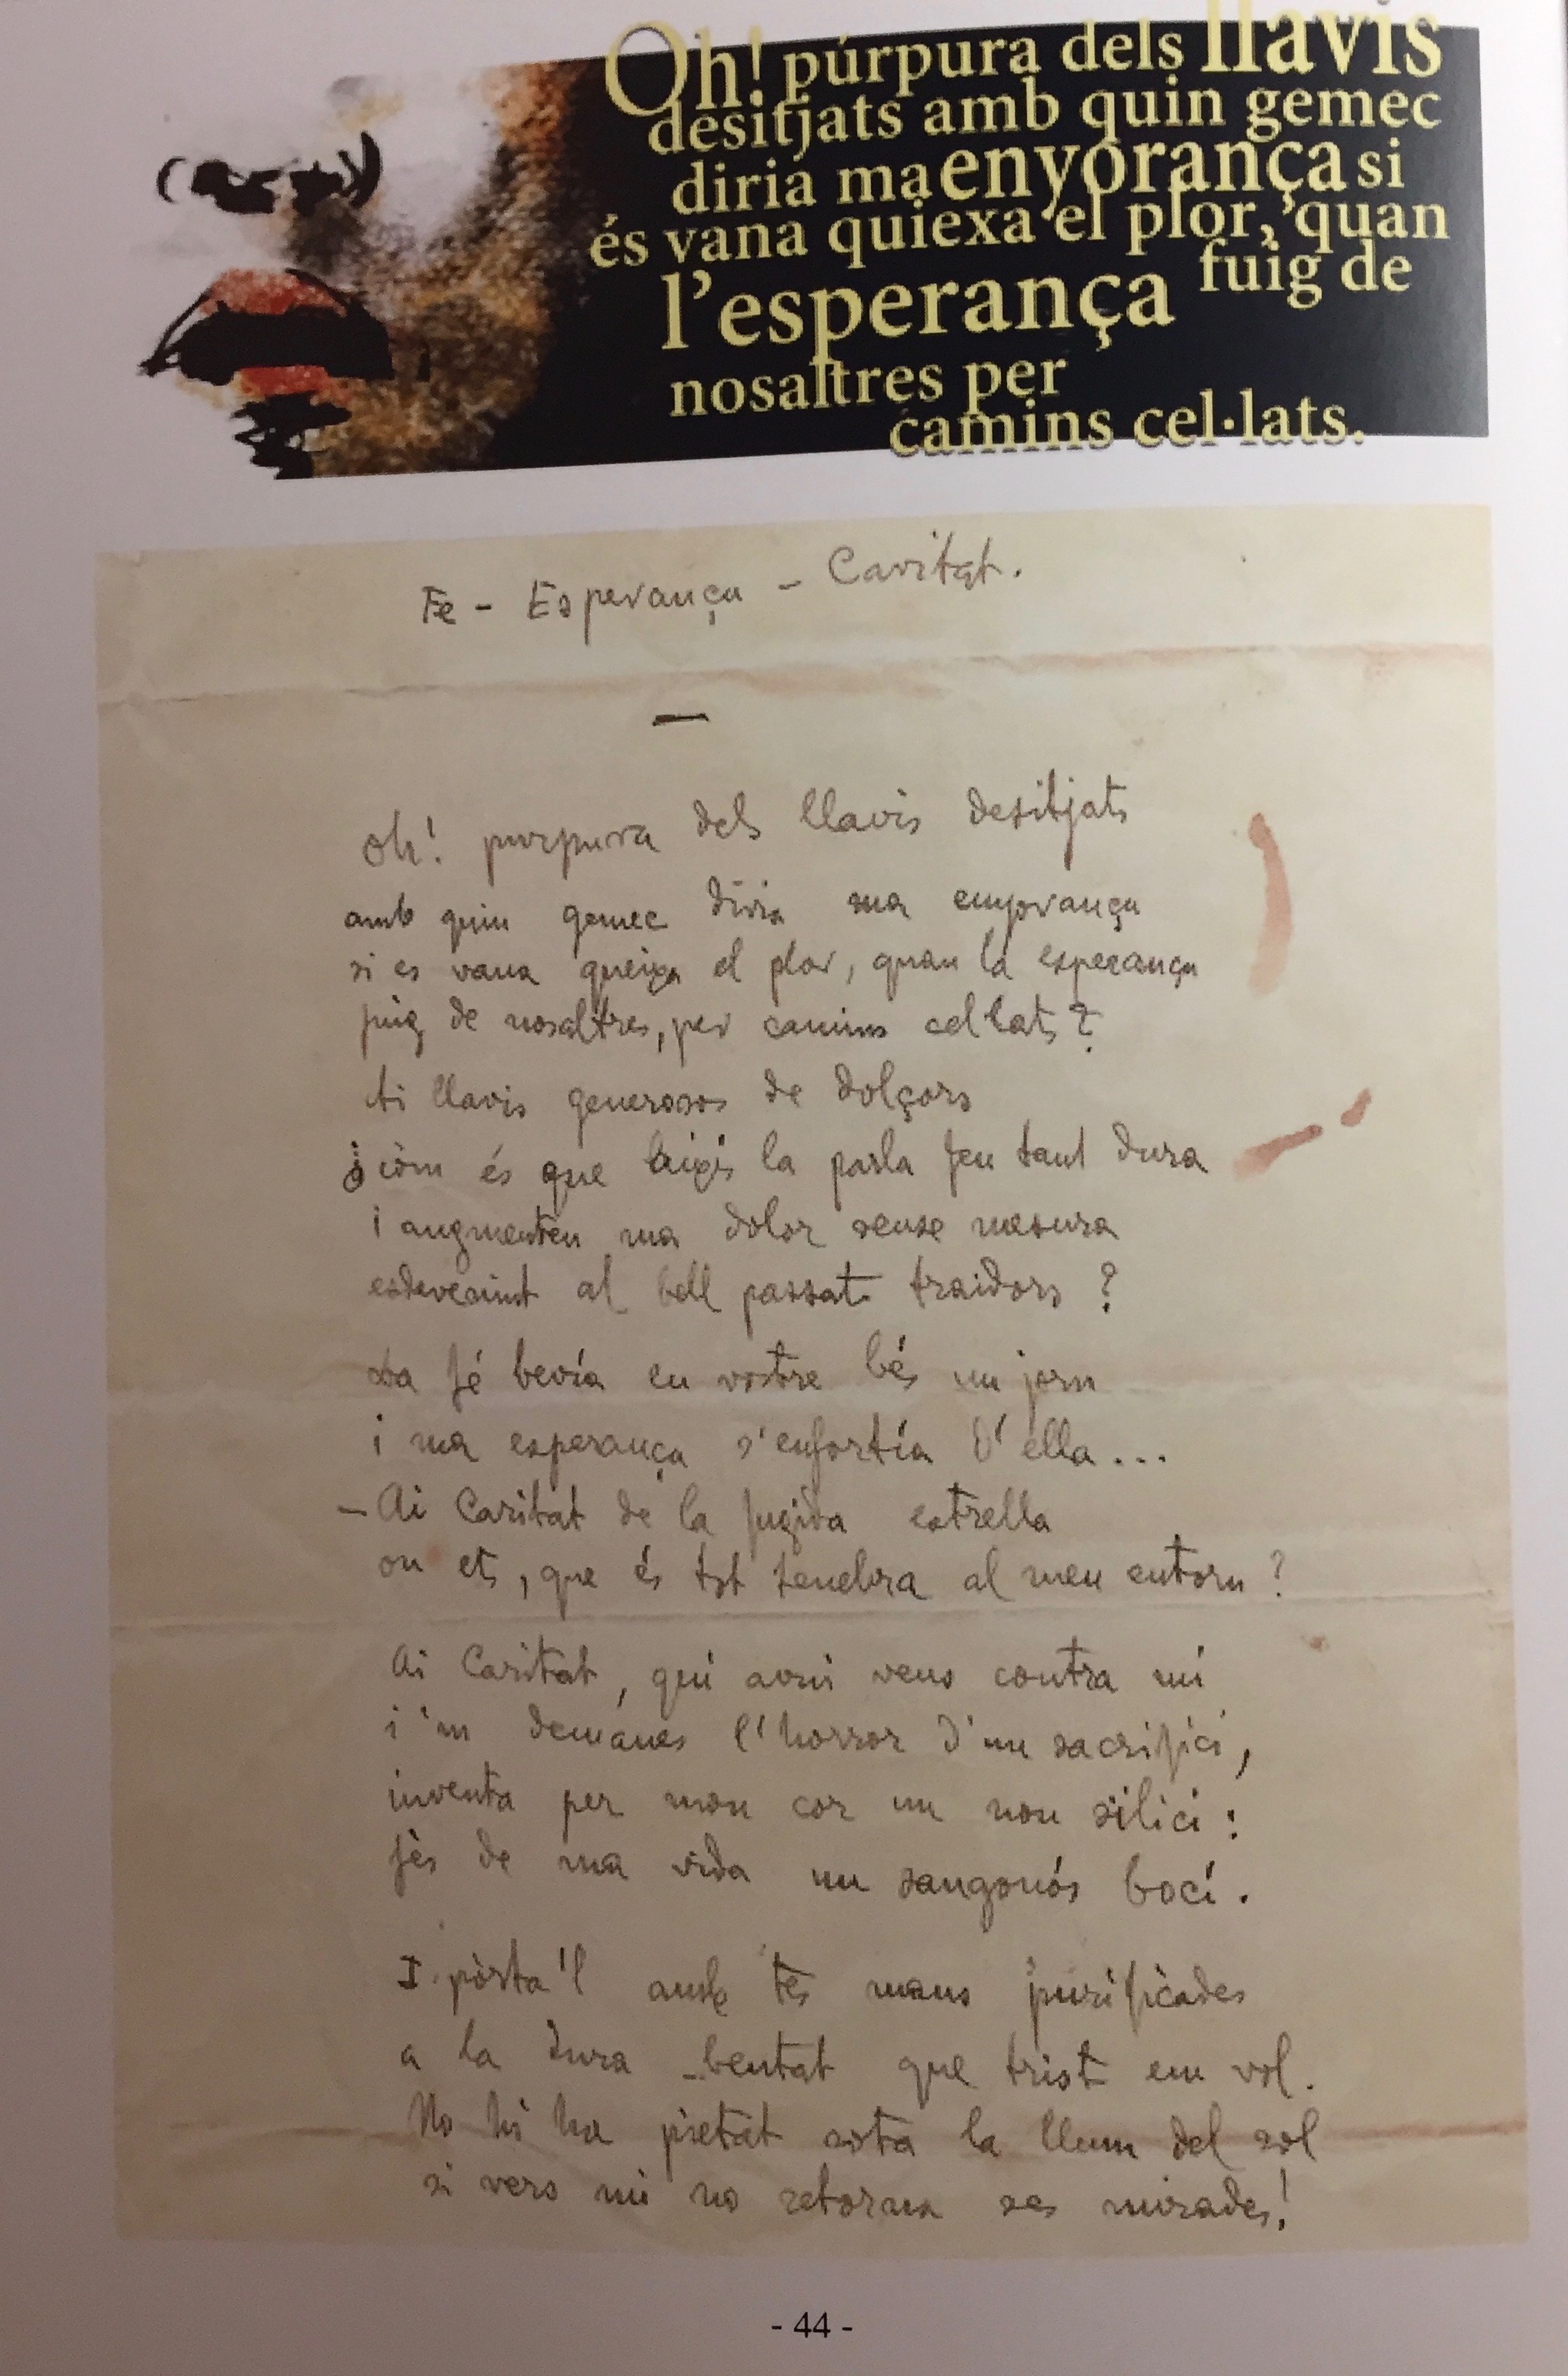 Oh! púrpura dels llavis
desitjats amb quin gemec
diria ma enyorança si
és vana quiexa el plor, quan
l'esperança fuig de
nosaltres per
camins cel·lats.
Fe - Esperança - Caritat.
Oh! purpura dels llavis desitjats
amb quin gemec diria ma enyorança
si es vana queixa el plor, quan la esperança
fuig de nosaltres, per camins cel lats?
Ai llavis generosos de dolçors
¿còm és que aixís la parla feu tant dura
i augmenteu ma dolor sense mesura
esdevenint al bell passat traidors?
La fé bevía en vostre bés un jorn
i ma esperança s'enfortía d'ella...
- Ai Caritat de la fugida estrella
on ets, que és tot tenebra al meu entorn?
Ai Caritat, qui avui veus contra mí
i 'm demanes l'horror d'un sacrifici,
inventa per mon cor un nou silici:
fès de ma vida un sangonós bocí.
I pòrta'l amb tes mans purificades
a la dura beutat que trist em vol.
No hi ha pietat sota la llum del sol
si vers mi no retorna ses mirades!
- 44 -